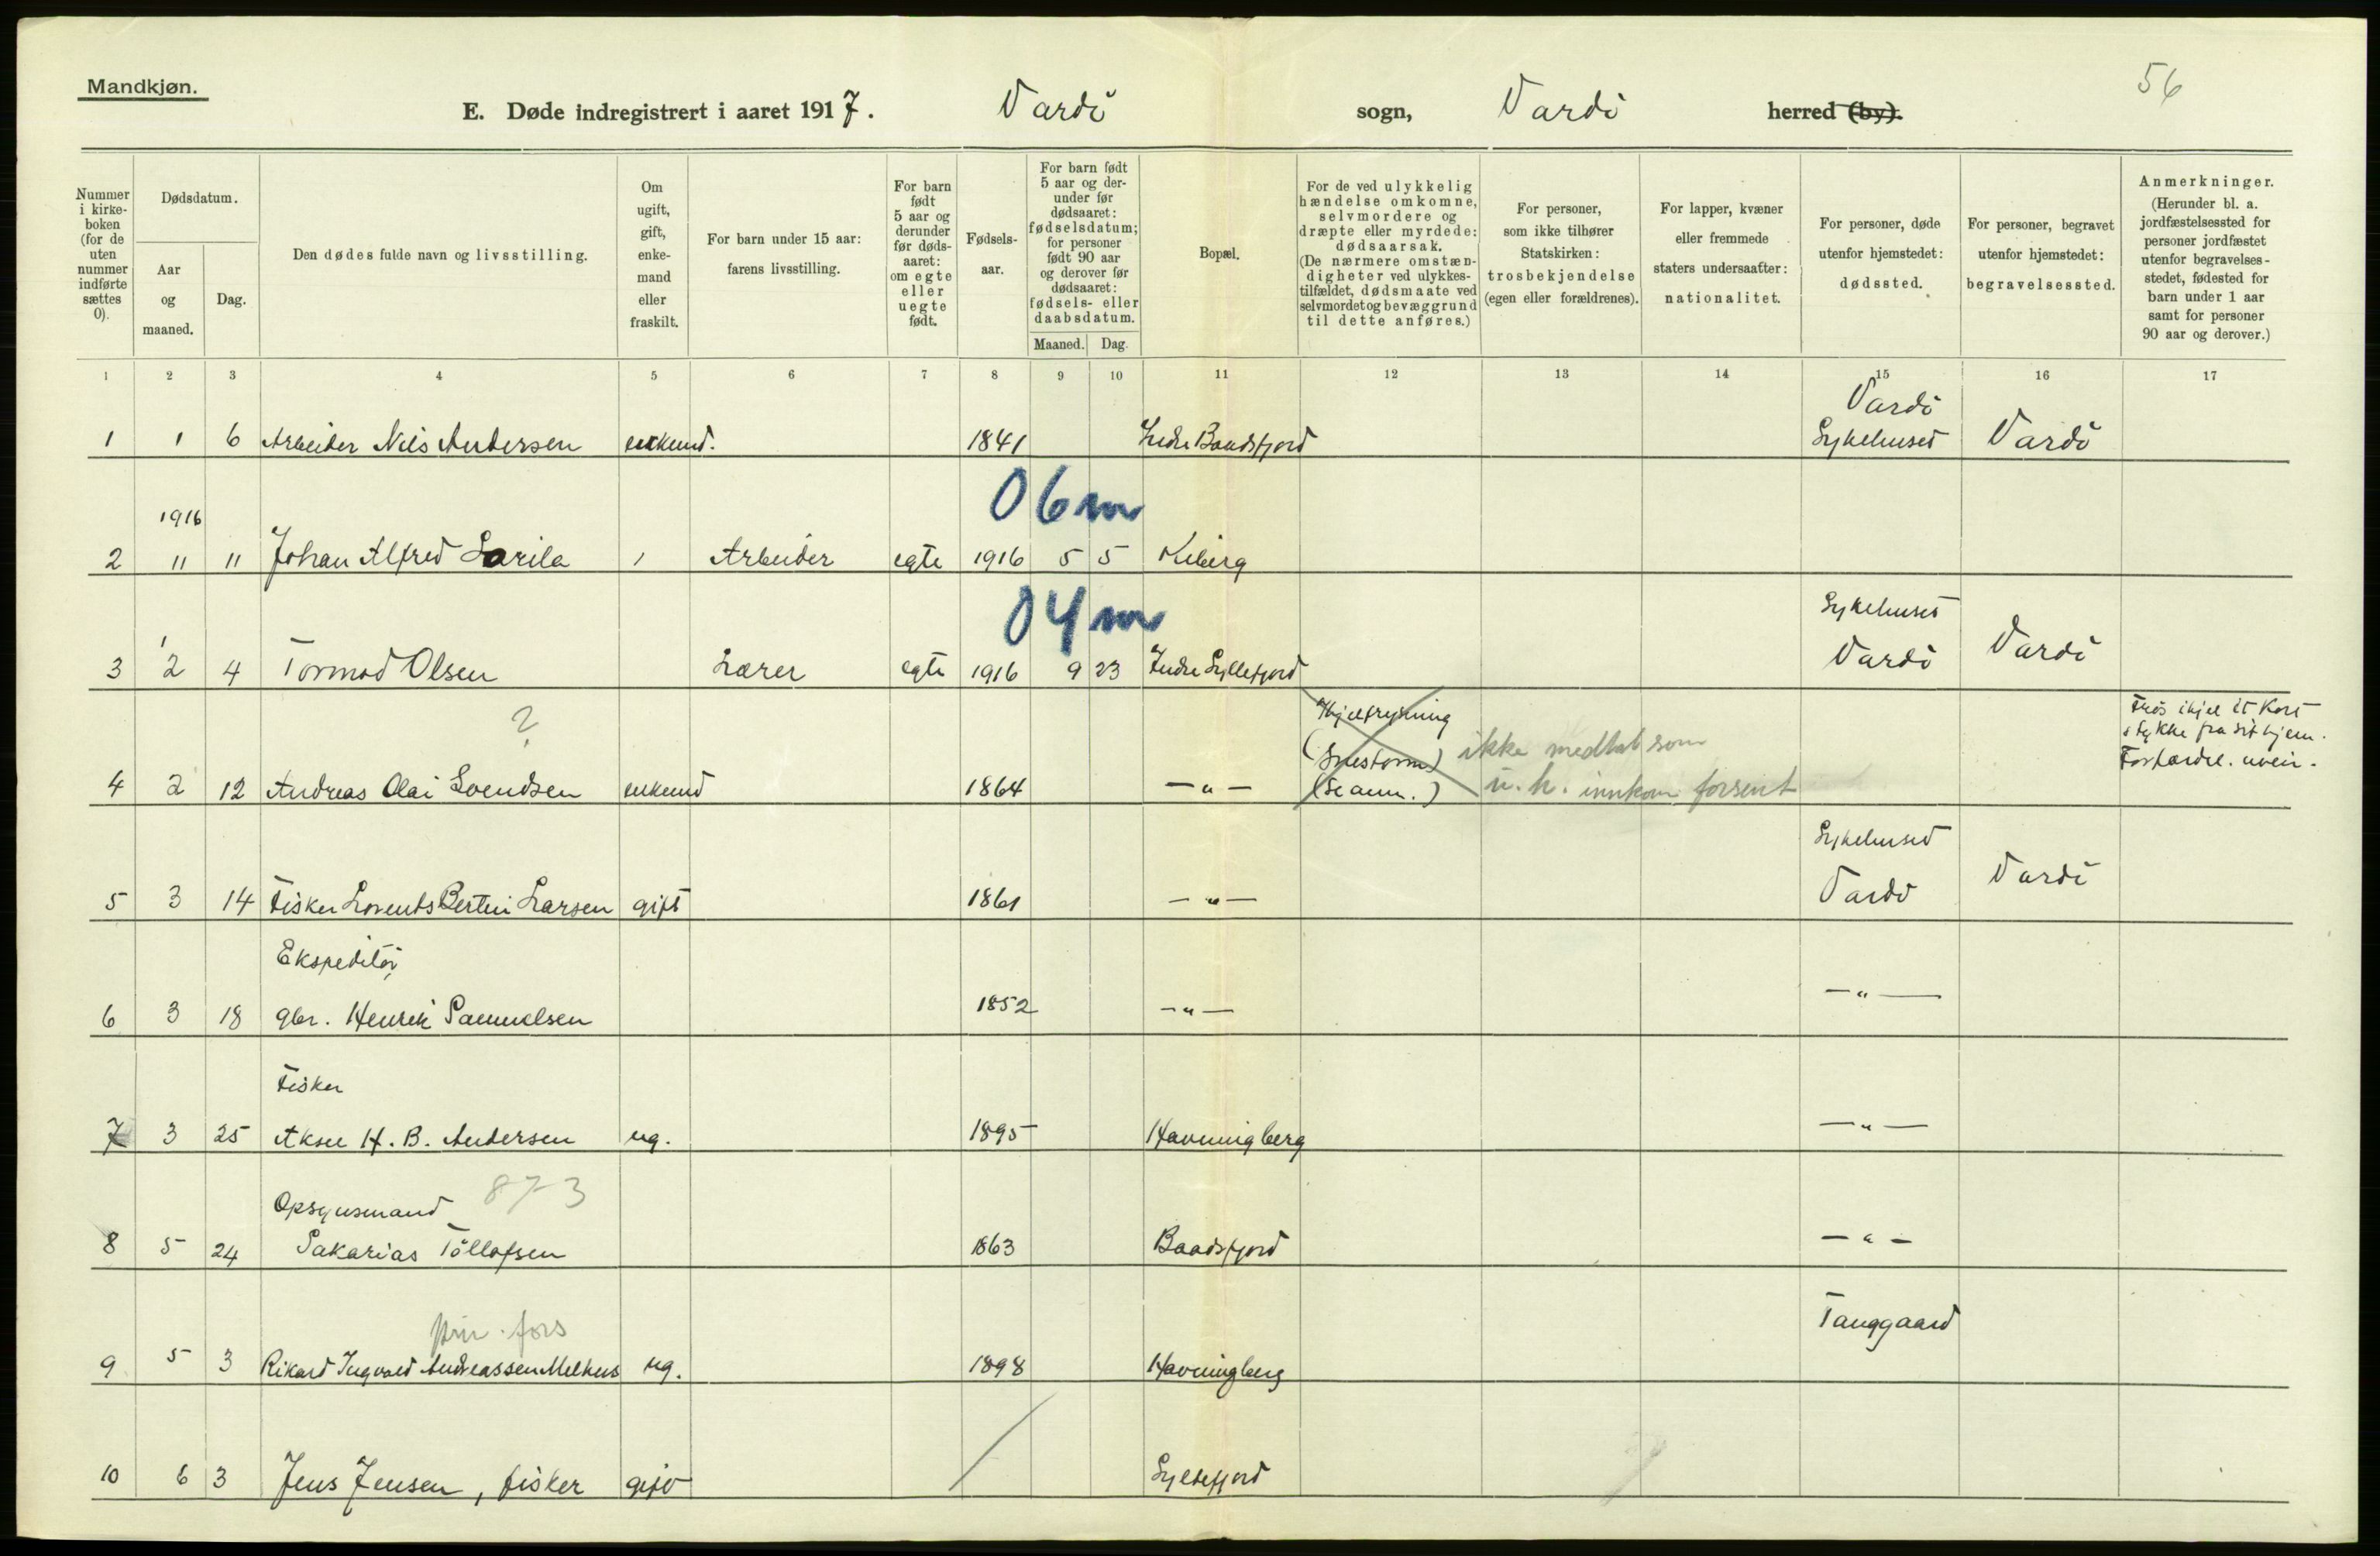 Mandkjøn.
56
E. Døde indregistrert i aaret 1917. Vardö sogn, Vardö herred (by).
Nummer i kirke-boken (for de uten nummer indførte sættes 0).
Dødsdatum.
Aar og maaned.
Dag.
Den dødes fulde navn og livsstilling.
Om ugift, gift, enke-mand eller fraskilt.
For barn under 15 aar: farens livsstilling.
For barn født 5 aar og derunder før døds-aaret: om egte eller uegte født.
Fødsels-aar.
For barn født 5 aar og der-under før dødsaaret: fødselsdatum; for personer født 90 aar og derover før dødsaaret: fødsels- eller daabsdatum.
Maaned. Dag.
Bopæl.
For de ved ulykkelig hændelse omkomne, selvmordere og dræpte eller myrdede: dødsaarsak. (De nærmere omstæn-digheter ved ulykkes-tilfældet, dødsmaate ved selvmordet og bevæggrund til dette anføres.)
For personer, som ikke tilhører Statskirken: trosbekjendelse (egen eller forældrenes).
For lapper, kvæner eller fremmede staters undersaatter: nationalitet.
For personer, døde utenfor hjemstedet: dødssted.
For personer, begravet utenfor hjemstedet: begravelsessted.
Anmerkninger. (Herunder bl. a. jordfæstelsessted for personer jordfæstet utenfor begravelses-stedet, fødested for barn under 1 aar samt for personer 90 aar og derover.)
1 2 3 4 5 6 7 8 9 10 11 12 13 14 15 16 17
Vardö
1 1 6 Arbeider Nils Andersen enkemd. 1841 Indre Baadsfjord Sykehuset Vardö
06 m
1916
2 11 11 Johan Alfred Larila 1 Arbeider egte 1916 5 5 Kiberg
04 m
1 Sykehuset
3 2 4 Tormod Olsen Lærer egte 1916 9 23 Indre Syltefjord Vardö Vardö
? Ihjelfrysning
(Snestorm) ikke medtat som
Frös ihjel et kort
stykke fra sit hjem.
Forfærdel. uveir.
4 2 12 Andreas Olai Svendsen enkemd 1864 — " — (Se anm.) u. h. innkom forsent
Sykehuset
5 3 14 Fisker Lorents Bertin Larsen gift 1861 — " — Vardö Vardö
Ekspeditör,
6 3 18 gbr. Henrik Samuelsen 1852 — " — — " —
Fisker
7 3 25 Aksel H. B. Andersen ug. 1895 Havningberg — " —
Opsynsmand 873
8 5 24 Sakarias Töllefsen 1863 Baadsfjord — " —
priv. fors Tanggaard
9 5 3 Rikard Ingvald Andreassen Melhus ug. 1898 Havningberg
10 6 3 Jens Jensen, fisker gift Syltefjord